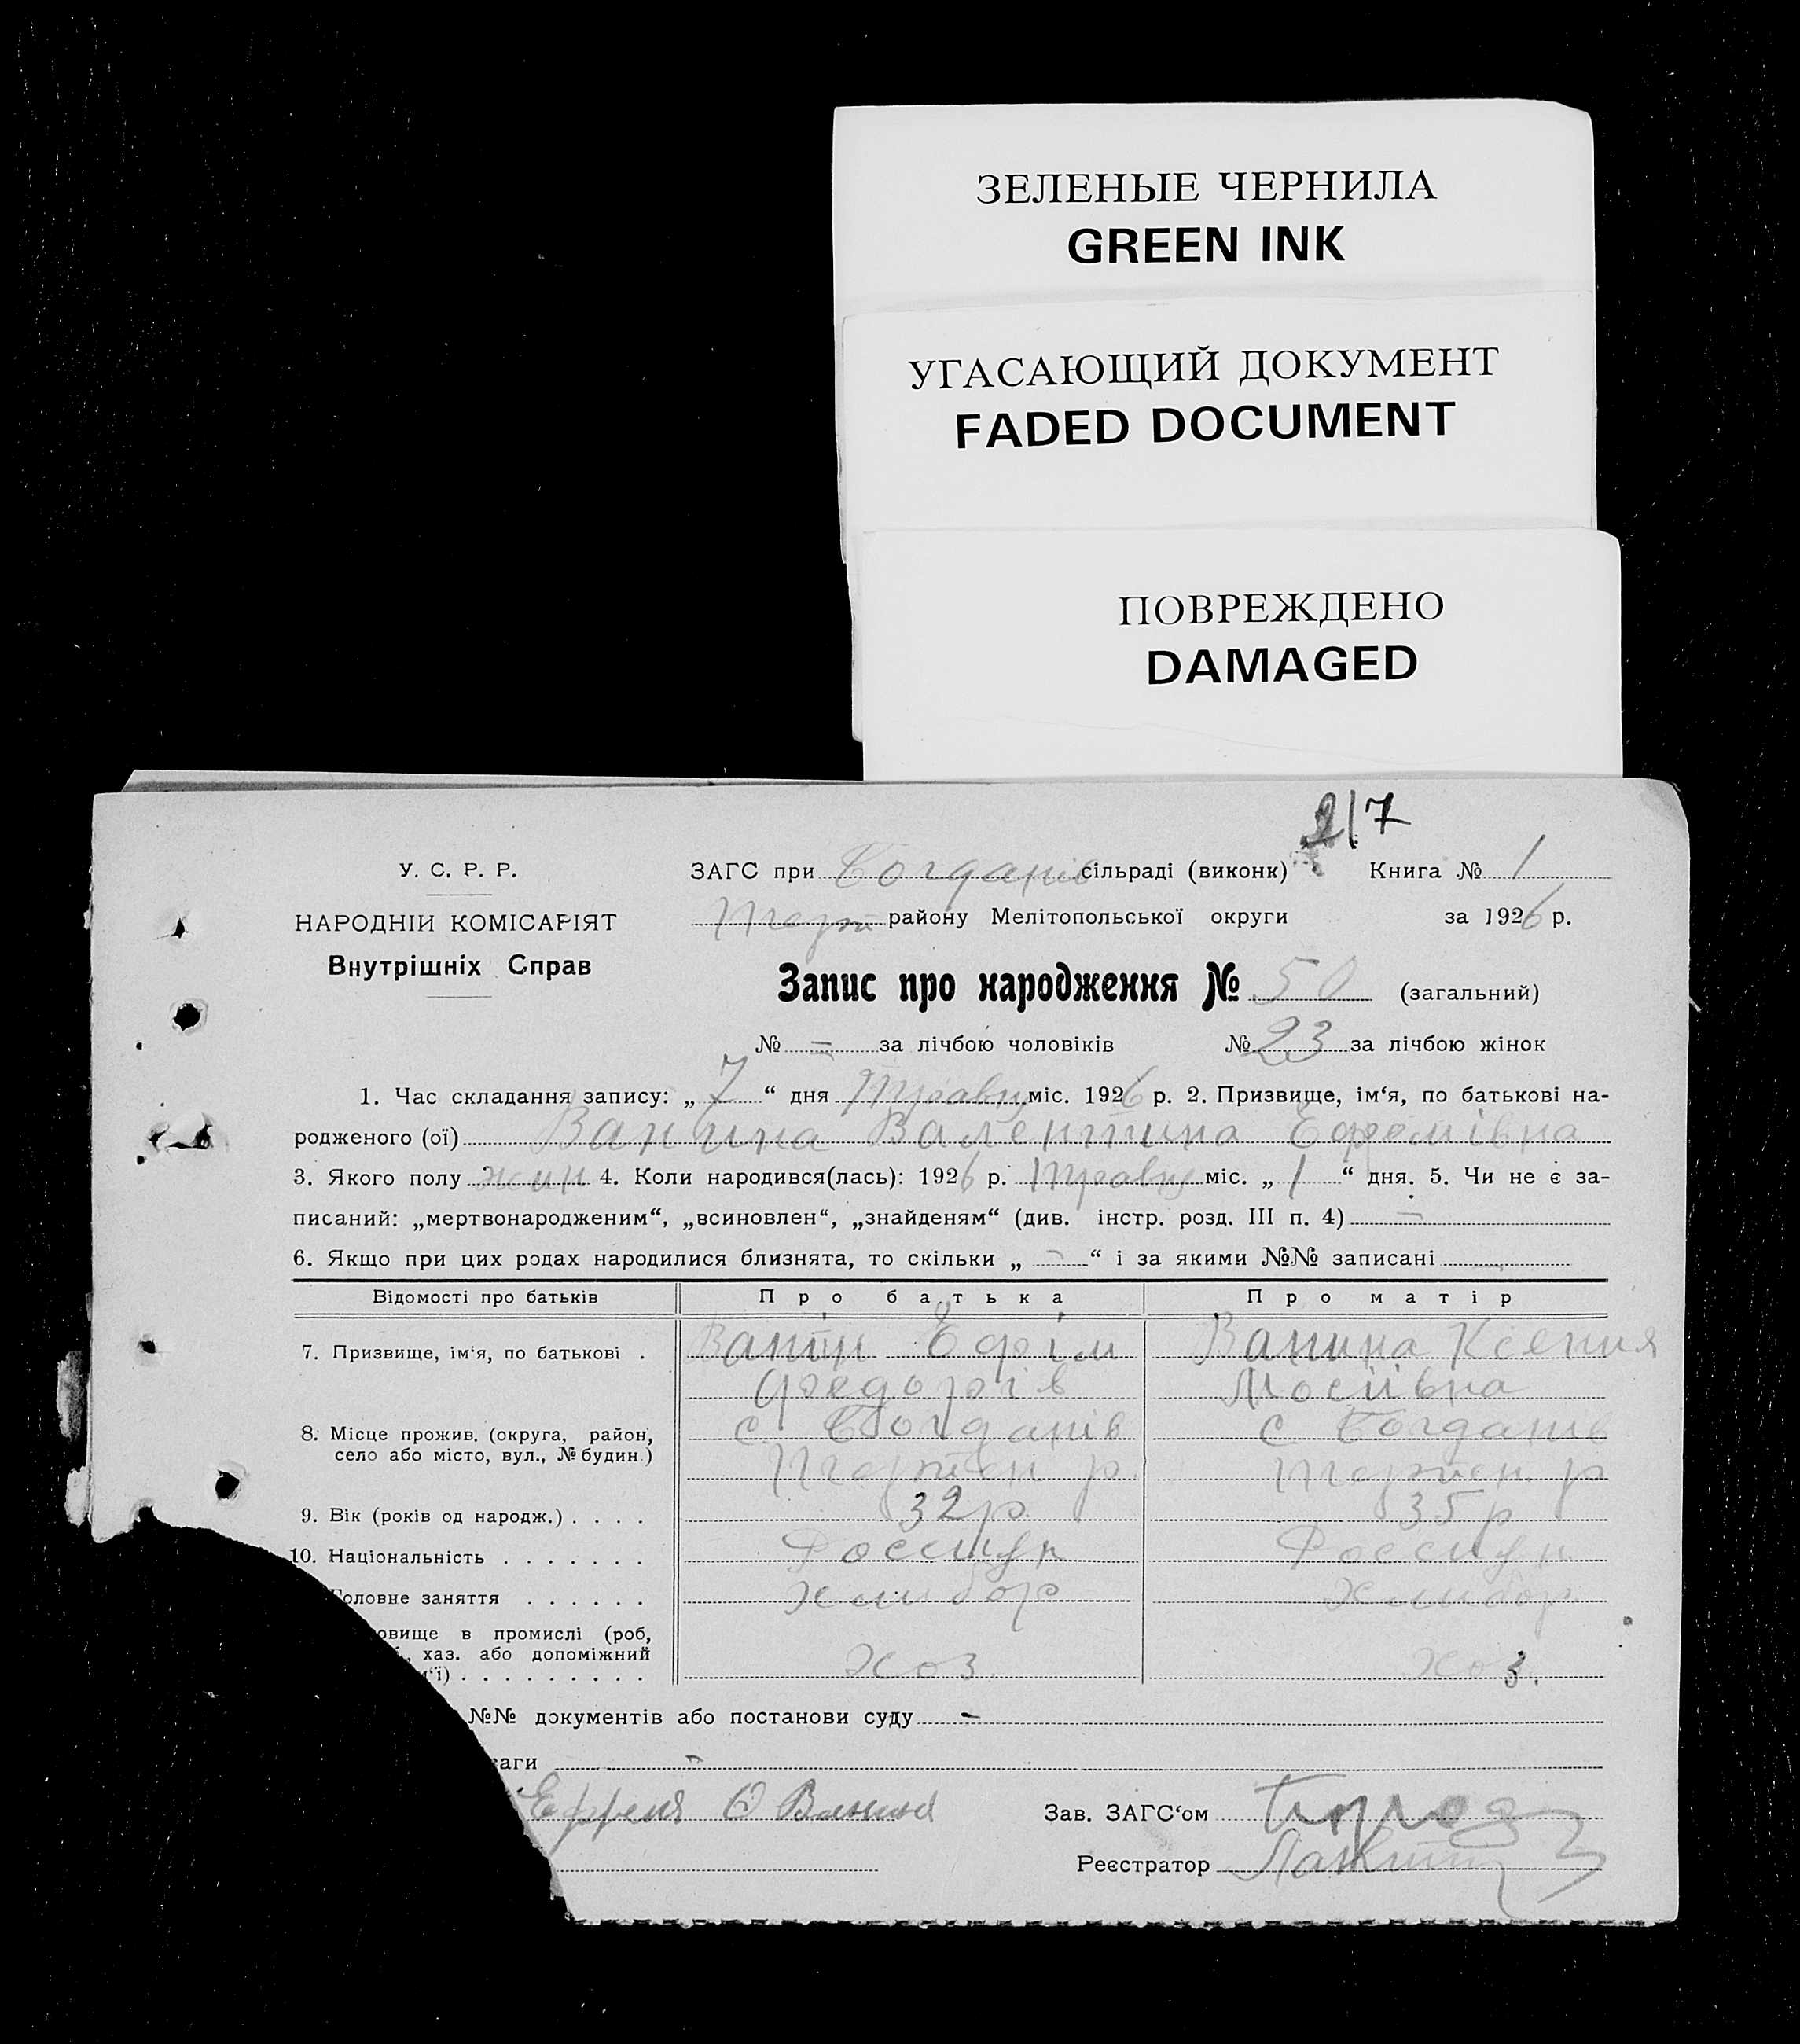 ЗЕЛЕНЫЕ ЧЕРНИЛА
GREEN INK
УГАСАЮЩИЙ ДОКУМЕНТ
FADED DOCUMENT
ПОВРЕЖДЕНО
DAMAGED
217
У. С. Р. Р.
ЗАГС при Богданів сільраді (виконк) Книга № 1
НАРОДНІЙ КОМІСАРІЯТ
району Мелітопольської округи за 1926 р.
Внутрішніх Справ
Запис про народження № 50 (загальний)
№ — за лічбою чоловіків № 23 за лічбою жінок
1. Час складання запису: „ 7 “ дня Травц міс. 1926 р. 2. Призвище, ім‘я, по батькові на-
родженого (ої) Ванина Валентина Ефремівна
3. Якого полу жин 4. Коли народився(лась): 1926 р. Травц міс. „ 1 “ дня. 5. Чи не є за-
писаний: „мертвонародженим“, „всиновлен“, „знайденям“ (див. інстр. розд. III п. 4) —
6. Якщо при цих родах народилися близнята, то скільки „ — “ і за якими №№ записані
Відомості про батьків Про батька Про матір
7. Призвище, ім‘я, по батькові . Ванин Ефрім Ванина Ксения
Федорів Мосіівна
8. Місце прожив. (округа, район, с Богданів с Богданів
село або місто, вул., № будин.) р р
9. Вік (років од народж.) . . . . 32 р. 35 р
10. Національність . . . . . . . Россиун Россиун
Головне заняття . . . . . . Хлибор Хлибор
овище в промислі (роб,
, хаз. або допоміжний
м‘ї) . . . . . . . . . Хоз Хоз.
№№ документів або постанови суду —
ваги —
Ефрем Ф Ванин Зав. ЗАГС‘ом
Реєстратор